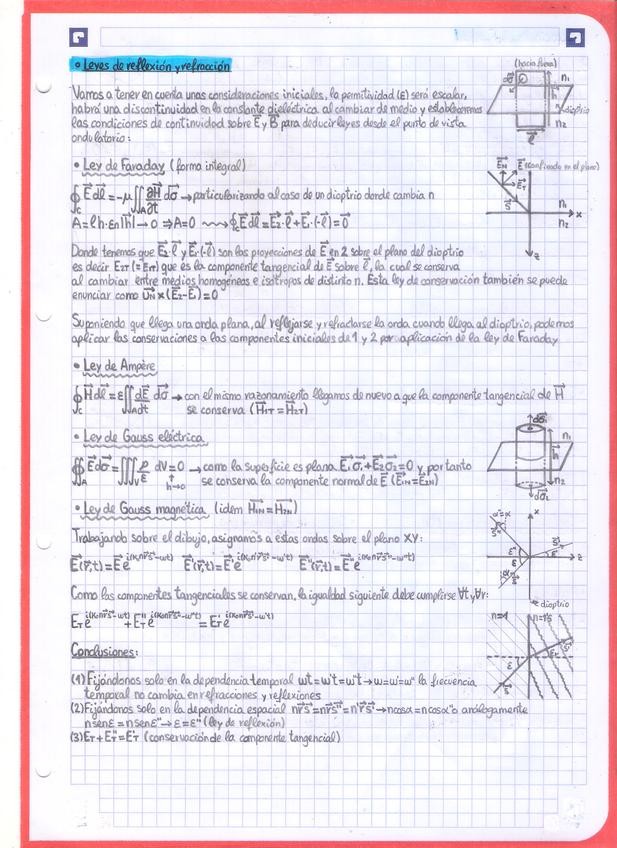 • Leyes de reflexión y refracción
(hacia fuera)
Vamos a tener en cuenta unas consideraciones iniciales, la permitividad (ε) será escalar,
habrá una discontinuidad en la constante dieléctrica al cambiar de medio y estableceremos
las condiciones de continuidad sobre E⃗ y B⃗ para deducir leyes desde el punto de vista
ondulatorio:
dσ⃗ n₁ h dioptrio n₂ l⃗
• Ley de Faraday (forma integral)
∮c E⃗ dl⃗ = -μ∬A ∂H⃗/∂t dσ⃗ → particularizando al caso de un dioptrio donde cambia n
A = l h · en |h⃗| → 0 ⇒ A = 0 ⇝ ∮c E⃗ dl⃗ = E⃗₂·l⃗ + E⃗₁·(-l⃗) = 0⃗
E⃗N E⃗ (confinado en el plano) E⃗T S⃗ n₁ x n₂ z
Donde tenemos que E⃗₂·l⃗ y E⃗₁·(-l⃗) son las proyecciones de E⃗ en 2 sobre el plano del dioptrio
es decir E₂T (=E₁T) que es la componente tangencial de E⃗ sobre l⃗, la cual se conserva
al cambiar entre medios homogéneos e isótropos de distinto n. Esta ley de conservación también se puede
enunciar como U⃗N×(E⃗₂-E⃗₁)=0
Suponiendo que llega una onda plana, al reflejarse y refractarse la onda cuando llega al dioptrio, podemos
aplicar las conservaciones a las componentes iniciales de 1 y 2 por aplicación de la ley de Faraday
• Ley de Ampère
∮c H⃗ dl⃗ = ε∬A dE⃗/dt dσ⃗ → con el mismo razonamiento llegamos de nuevo a que la componente tangencial de H⃗
se conserva (H⃗₁T = H⃗₂T)
• Ley de Gauss eléctrica
∯A E⃗ dσ⃗ = ∭V ρ/ε dV = 0 → como la superficie es plana E⃗₁σ⃗₁+E⃗₂σ⃗₂=0 y por tanto
h→0 se conserva la componente normal de E⃗ (E⃗₁N=E⃗₂N)
dσ⃗₁ n₁ h n₂ dσ⃗₂
• Ley de Gauss magnética (idem H⃗₁N = H⃗₂N)
Trabajando sobre el dibujo, asignamos a estas ondas sobre el plano XY:
E⃗(r⃗,t)=E⃗e^i(K₀nr⃗s⃗-ωt) E⃗'(r⃗,t)=E⃗'e^i(K₀n'r⃗s⃗'-ω't) E⃗''(r⃗,t)=E⃗''e^i(K₀nr⃗s⃗''-ω''t)
Como las componentes tangenciales se conservan, la igualdad siguiente debe cumplirse ∀t y ∀r:
x z dioptrio
Conclusiones:
(1) Fijándonos solo en la dependencia temporal ωt=ω't=ω''t → ω=ω'=ω'' la frecuencia
temporal no cambia en refracciones y reflexiones
(2) Fijándonos solo en la dependencia espacial nr⃗s⃗=nr⃗s⃗''=n'r⃗s⃗' → ncosα=ncosα'' o análogamente
nsenε=nsenε'' → ε=ε'' (ley de reflexión)
(3) ET+E''T=E'T (conservación de la componente tangencial)